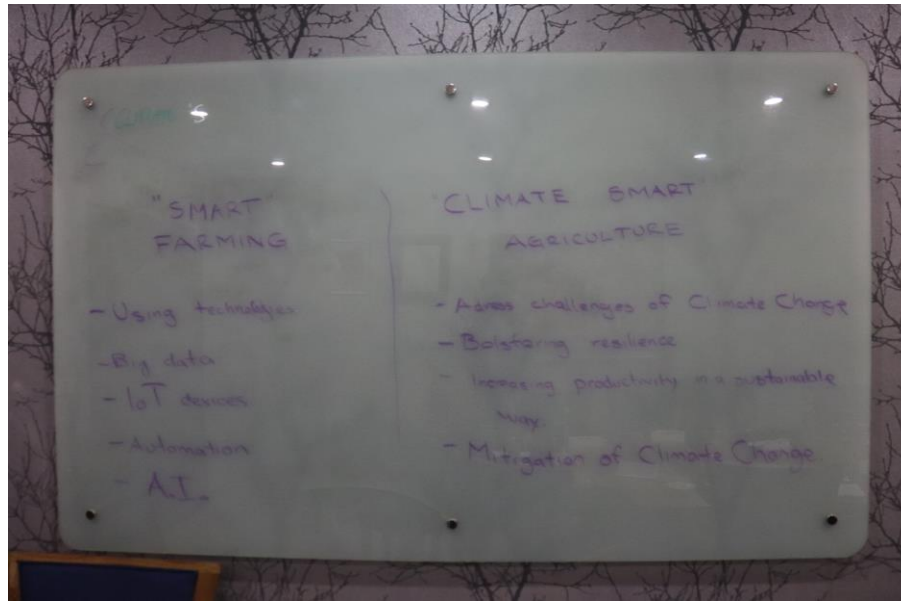 "SMART"
FARMING
- Using technologies
- Big data
- IoT devices
- Automation
- A.I.
"CLIMATE SMART"
AGRICULTURE
- Adress challenges of Climate Change
- Bolstering resilience
- Increasing productivity in a sustainable
way.
- Mitigation of Climate Change